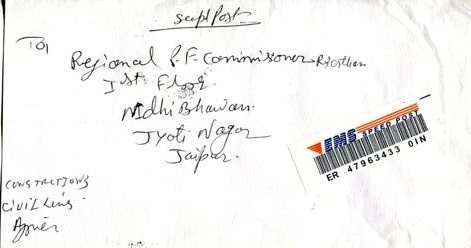 To,
Regional P.F. Commissioner Rajasthan
Ist Floor
Nidhi Bhawan.
Jyoti Nagar
Jaipur.
EMS SPEED POST
ER 47963433 0IN
CONSTRUCTIONS
CIVIL Lines